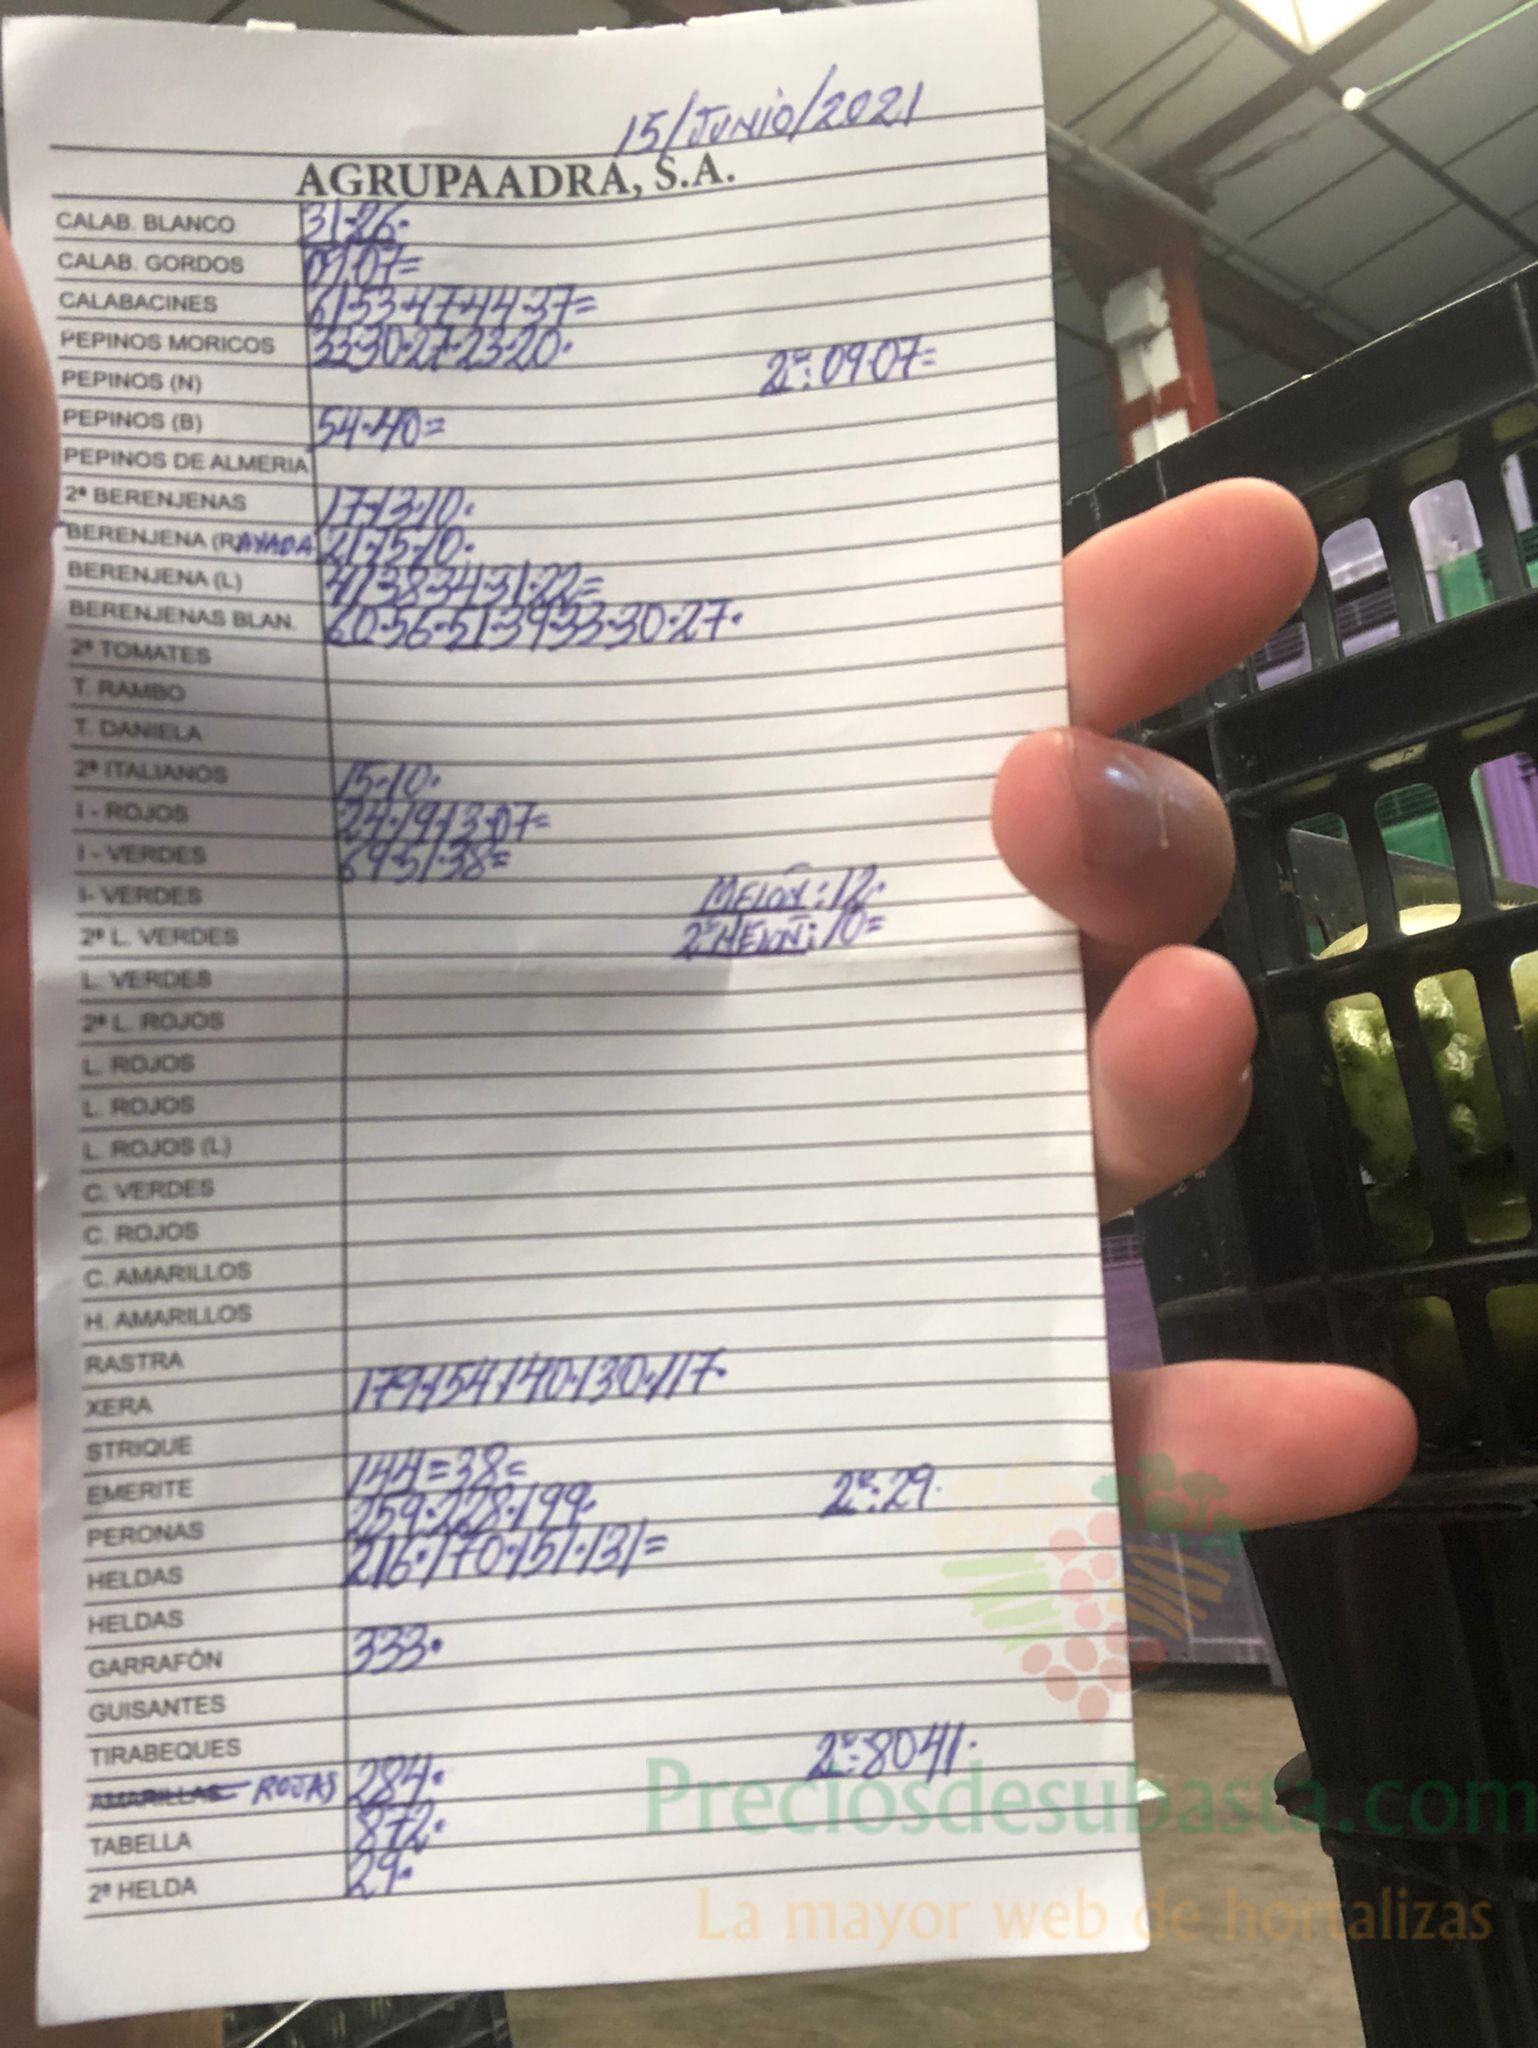 15/JUNIO/2021
AGRUPAADRA, S.A.
CALAB. BLANCO 31·26·
CALAB. GORDOS 09·07=
CALABACINES 61·53·47·44·37=
PEPINOS MORICOS 33·30·27·23·20·
PEPINOS (N) 2ª: 09·07=
PEPINOS (B) 54·40=
PEPINOS DE ALMERIA
2ª BERENJENAS 17·13·10·
BERENJENA (RAYADA 21·15·10·
BERENJENA (L) 41·38·34·31·22=
BERENJENAS BLAN. 60·56·51·39·33·30·27·
2ª TOMATES
T. RAMBO
T. DANIELA
2ª ITALIANOS 15·10·
I - ROJOS 24·19·13·07=
I - VERDES 69·51·38=
I- VERDES MELÓN: 12·
2ª L. VERDES 2ª MELÓN: 10=
L. VERDES
2ª L. ROJOS
L. ROJOS
L. ROJOS
L. ROJOS (L)
C. VERDES
C. ROJOS
C. AMARILLOS
H. AMARILLOS
RASTRA
XERA 179·154·140·130·117·
STRIQUE
EMERITE 144=38=
PERONAS 259·228·199· 2ª: 29·
HELDAS 216·170·151·131=
HELDAS
GARRAFÓN 333·
GUISANTES
TIRABEQUES
AMARILLAS= ROJAS 284· 2ª: 80·41·
TABELLA 872·
2ª HELDA 29·
Preciosdesubasta.com
La mayor web de hortalizas